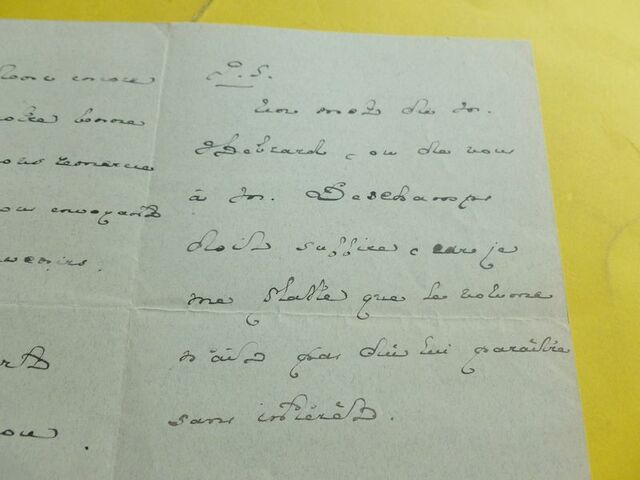 encore
votre bonne
vous remercie
vous envoyant
P.S.
Un mot de M.
, ou de vous
à M. Deschamps
doit suffire, car je
me flatte que le volume
n'ait pas dû lui paraître
sans intérêt.